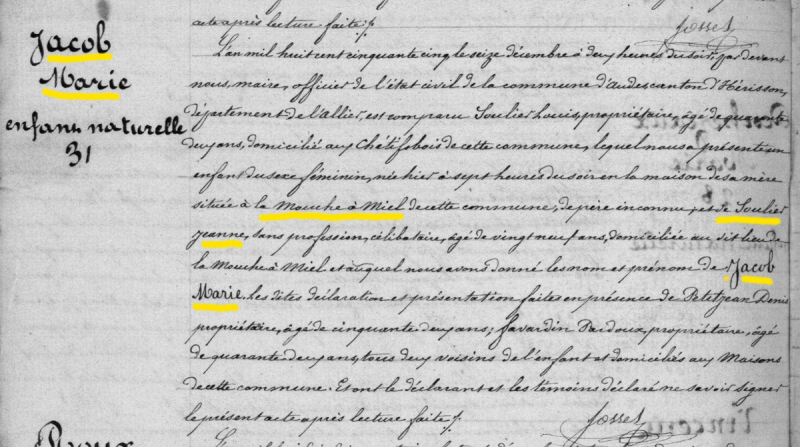 acte après lecture faite ·/.
Josset
Jacob
Marie
enfant naturelle
31
L'an mil huit cent cinquante cinq le seize décembre à deux heures du soir, par devant
nous, maire, officier de l'état civil de la commune d'Audes canton d'Hérisson,
département de l'Allier, est comparu Soulier Louis, propriétaire, âgé de quarante
deux ans, domicilié aux Chétifsbois de cette commune, lequel nous a présenté un
enfant du sexe féminin, née hier à sept heures du soir en la maison de sa mère
située à la Mouche à Miel de cette commune, de père inconnu, et de Soulier
Jeanne, sans profession, célibataire, âgé de vingt neuf ans, domiciliée au dit lieu de
la Mouche à Miel et auquel nous avons donné les nom et prénom de Jacob
Marie. Les dites déclaration et présentation faites en présence de Petitjean Denis
propriétaire, âgé de cinquante deux ans; Favardin Pardoux, propriétaire, âgé
de quarante deux ans, tous deux voisins de l'enfant et domiciliés aux Maisons
de cette commune. Et ont le déclarant et les témoins déclaré ne savoir signer
le présent acte après lecture faite ·/.
Josset